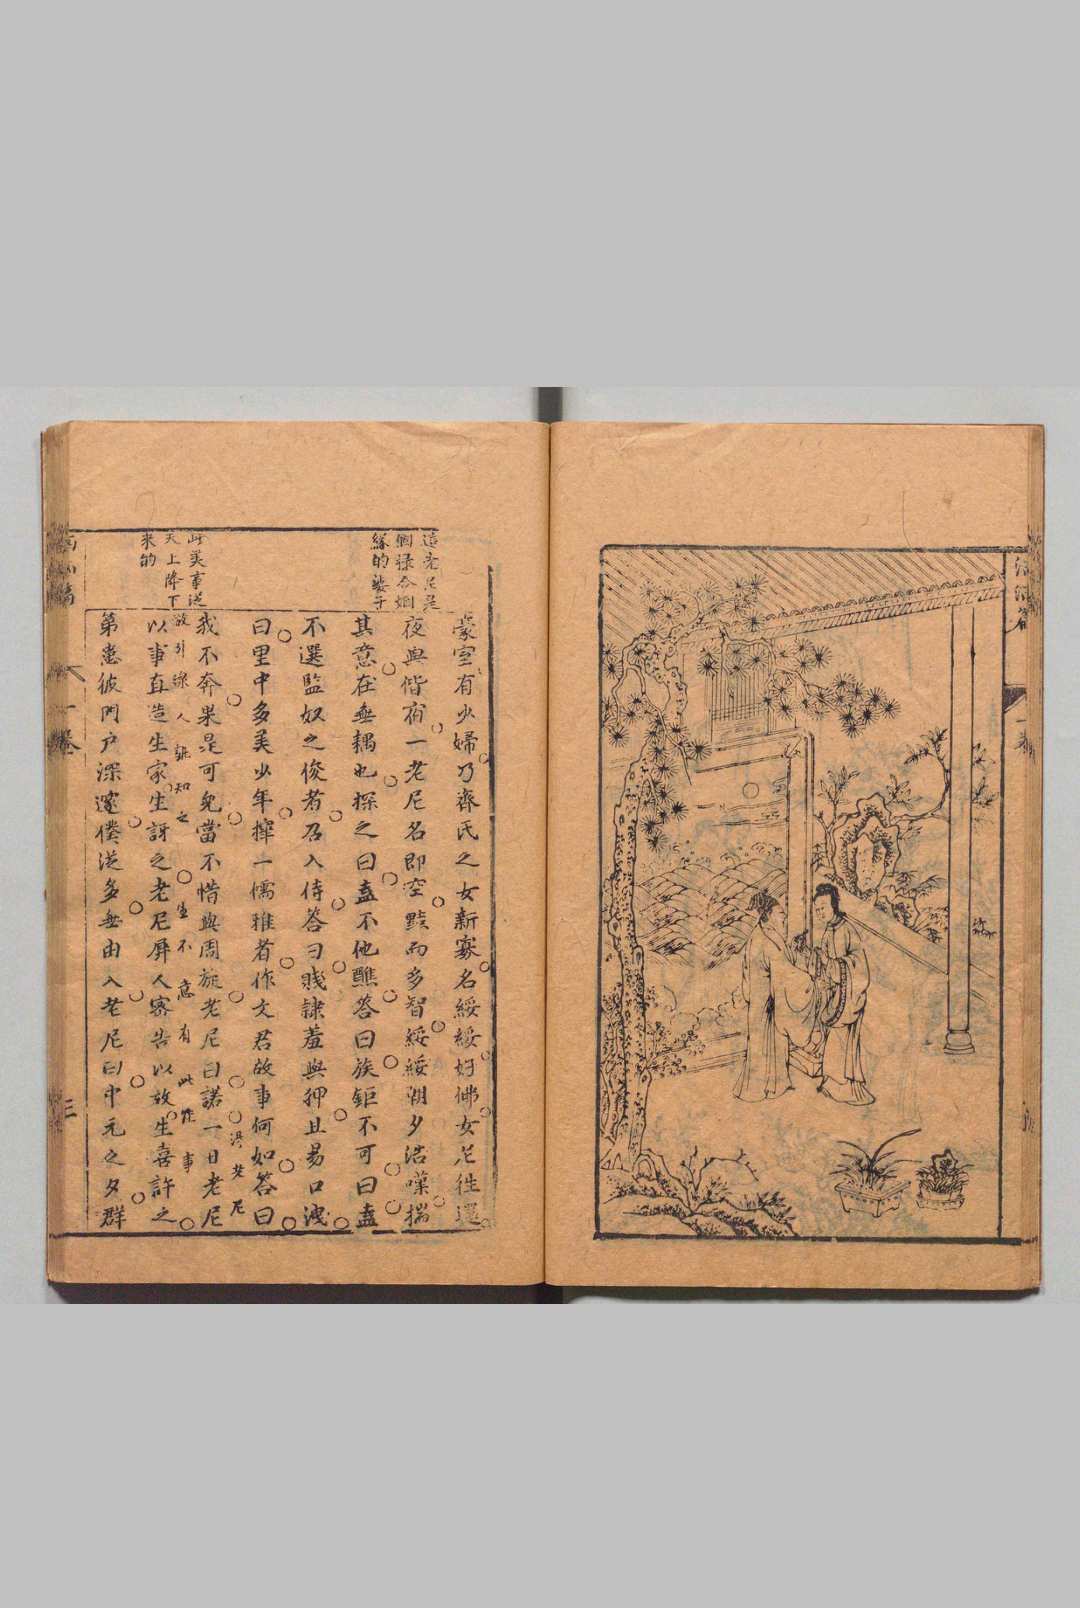 一卷
豪室有少婦乃齊氏之女新寡名綏綏好佛女尼徃還
夜與偕宿一老尼名即空黠而多智綏綏朝夕浩嘆揣
其意在無耦也探之曰盍不他醮答曰族鉅不可曰盍
不選監奴之俊者召入侍答曰賤隷羞與狎且易口洩
曰里中多美少年擇一儒雅者作文君故事何如答曰
我不奔果是可免當不惜與周旋老尼曰諾一日老尼
以事直造生家生訝之老尼屏人密告以故生喜許之
第患彼門戶深邃僕從多無由入老尼曰中元之夕群
這老尼是
個撮合姻
緣的婆子
此美事從
天上降下
來的
放引線人誰知之
生不意有此蹤事
一卷
三